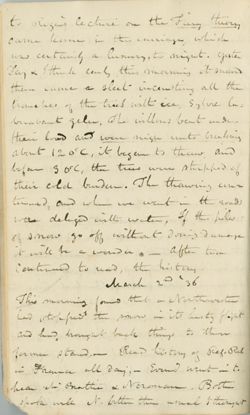 to Magie's lecture on the Fairy theory,
came home in the carriage, which
was certainly a luxury, to night. Quite
& I think early this morning it snowed
then came a sleet incrusting all the
branches of the trees with ice,
gelu. The willows bent under
their load and were nigh unto breaking
about 12 oC, it began to thaw and
before 3 oC, the trees were stripped of
their cold burden. The thawing con-
tinued, and when we went in the roads
were deluged with water, If the piles
of snow go off without doing damage
it will be a wonder. After tea
continued to read, the history.
March 2nd '36
This morning found that a Northwester
had stopped the snow in its hasty flight
and had brought back things to their
former stand. Read history of
in France all day, Evening went in to
hear Mr a Both
spoke with N. better than usual I thought